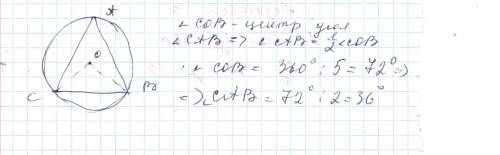 A
O
C
B
∠COB - центр угол
∠CAB => ∠CAB = 1/2 ∠COB
∠COB = 360° : 5 = 72° =>
=> ∠CAB = 72° : 2 = 36°